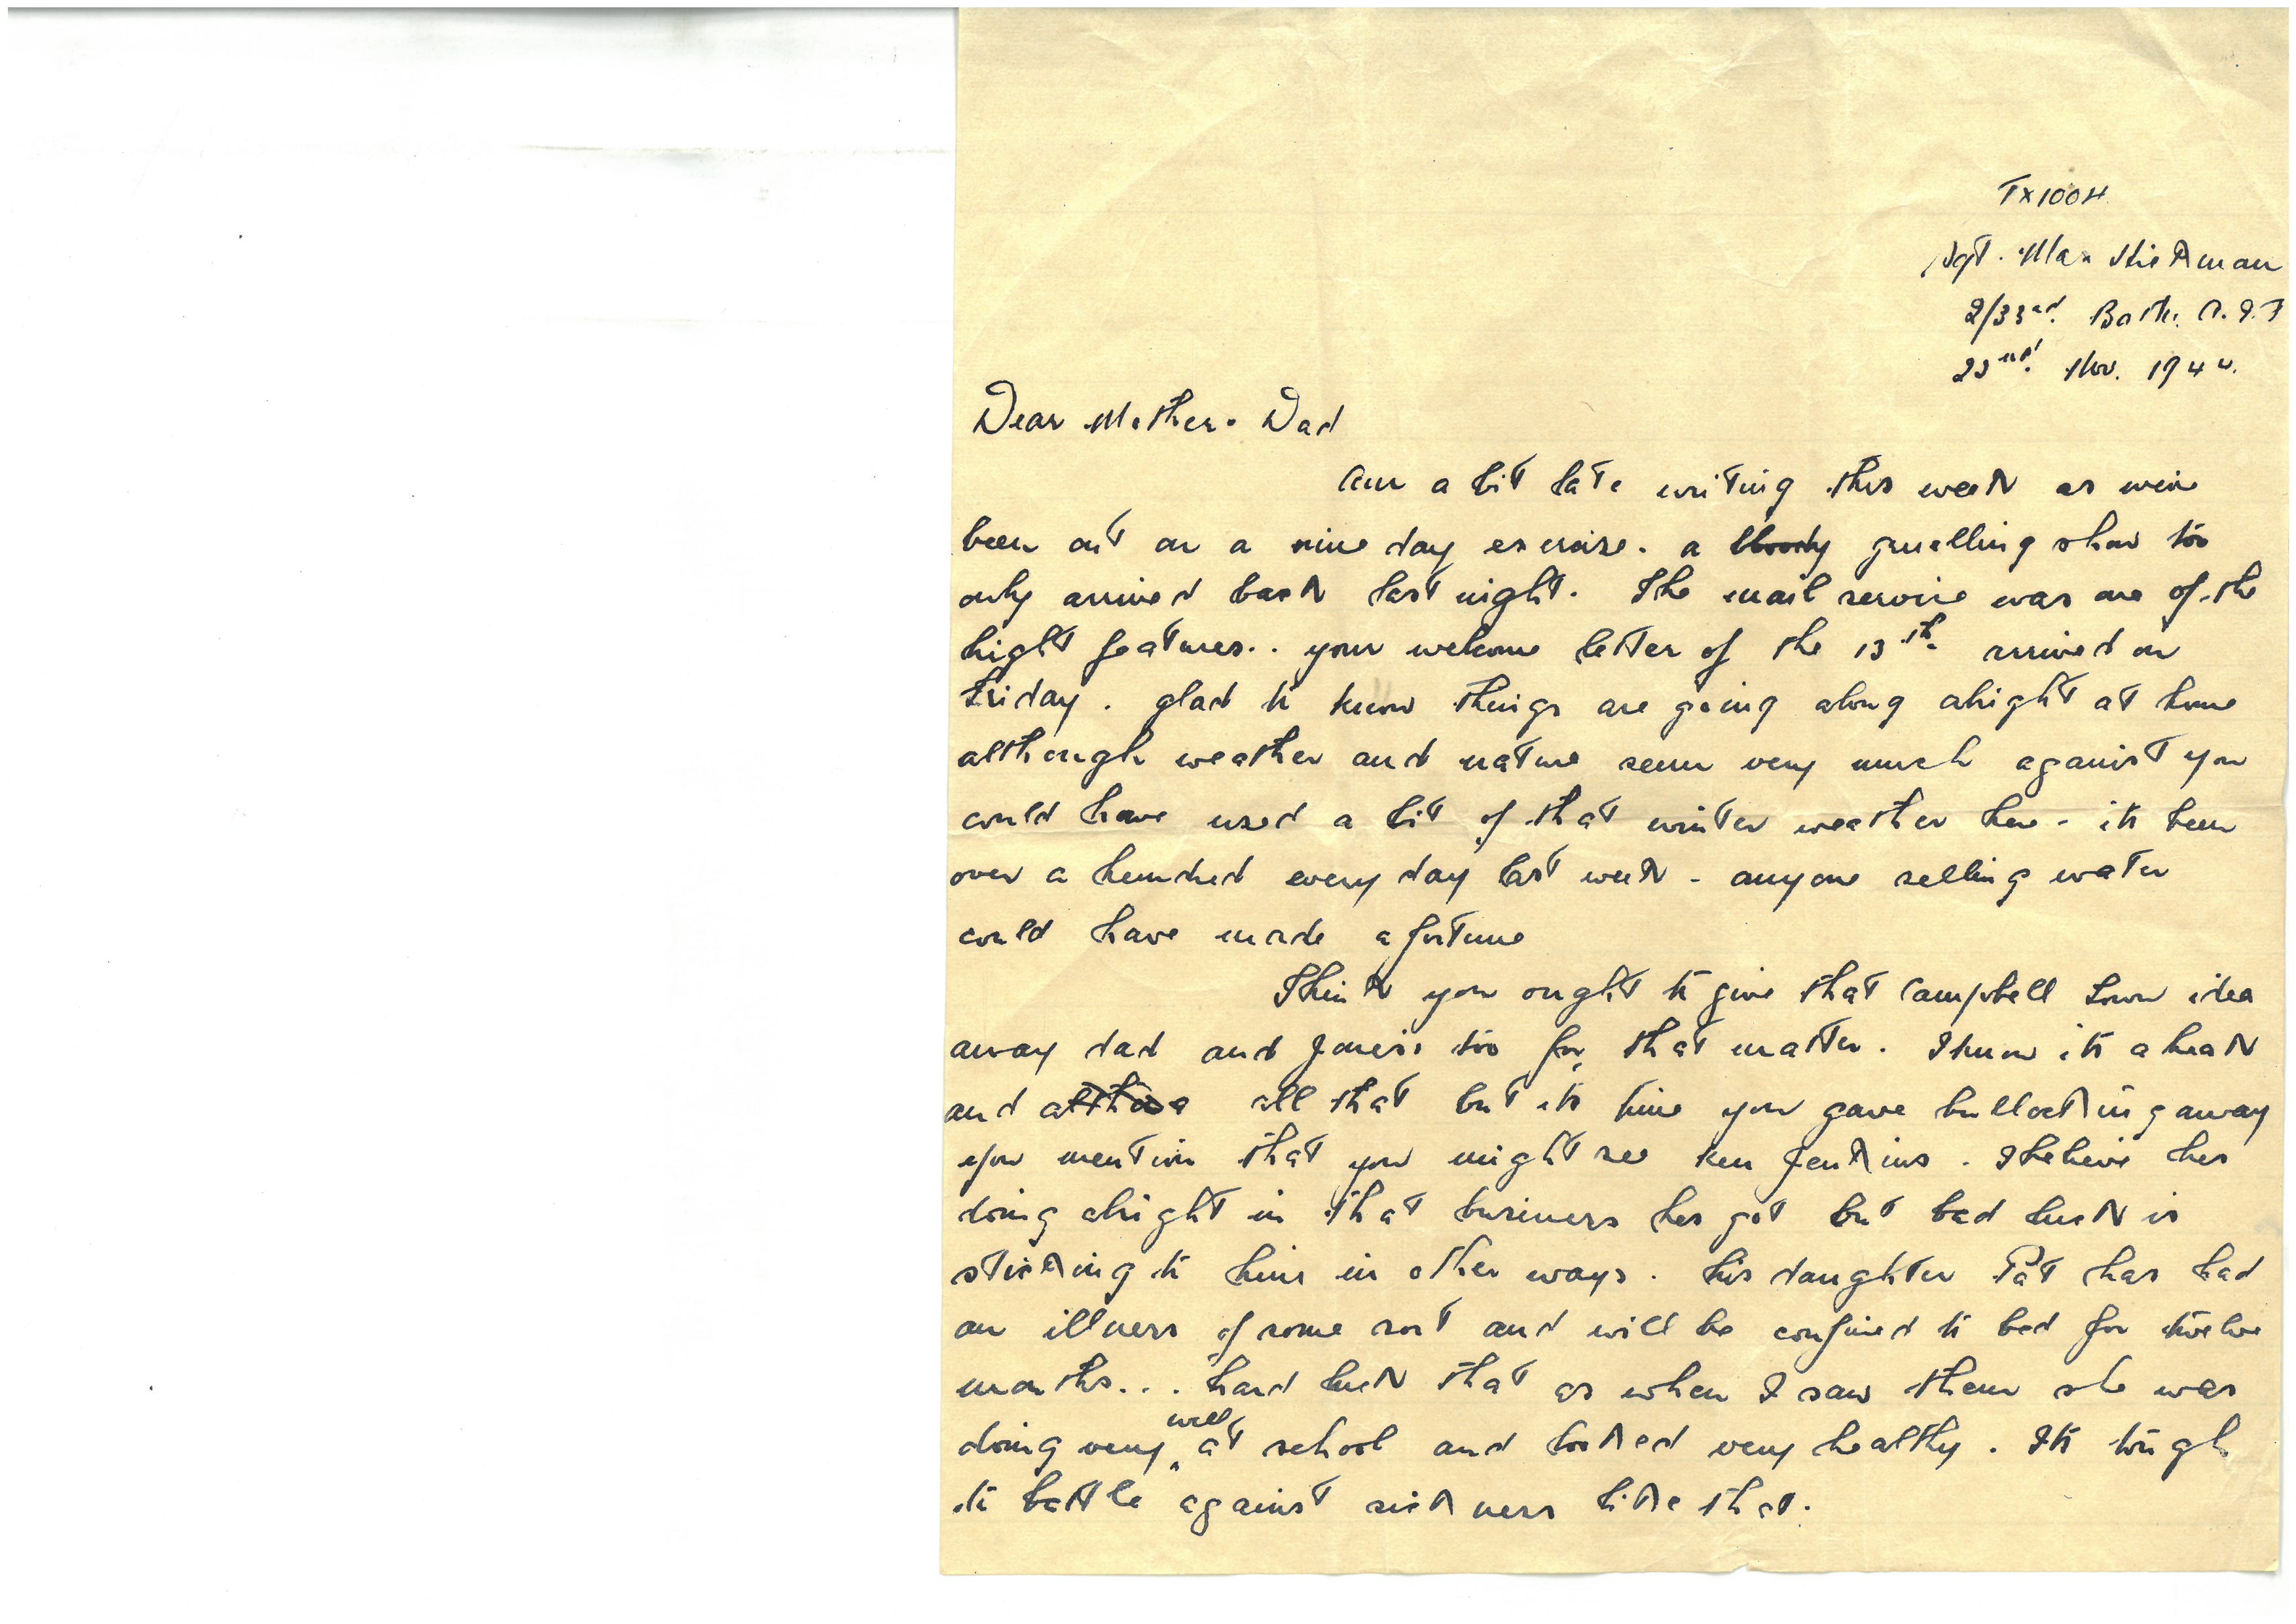 TX1004
Sgt. Max Hickman
2/33rd. Batt. A.I.F
22nd. Nov. 1944.
Dear Mother. Dad
Am a bit late writing this week as weve
been out on a nine day exercise. a bloody gruelling show too
only arrived back last night. The mail service was one of the
bright features.. your welcome letter of the 13th. arrived on
Friday. glad to know things are going along alright at home
although weather and nature seem very much against you
could have used a bit of that winter weather here - its been
over a hundred every day last week - anyone selling water
could have made a fortune
Think you ought to give that Campbell Town idea
away dad and too for that matter. I know its a break
and all that but its time you gave bullocking away
you mention that you might see Ken Jenkins. I believe hes
doing alright in that business hes got but bad luck is
sticking to him in other ways. his daughter Pat has had
an illness of some sort and will be confined to bed for twelve
months... hard luck that as when I saw them she was
doing very well at school and looked very healthy. Its tough
to battle against sickness like that.